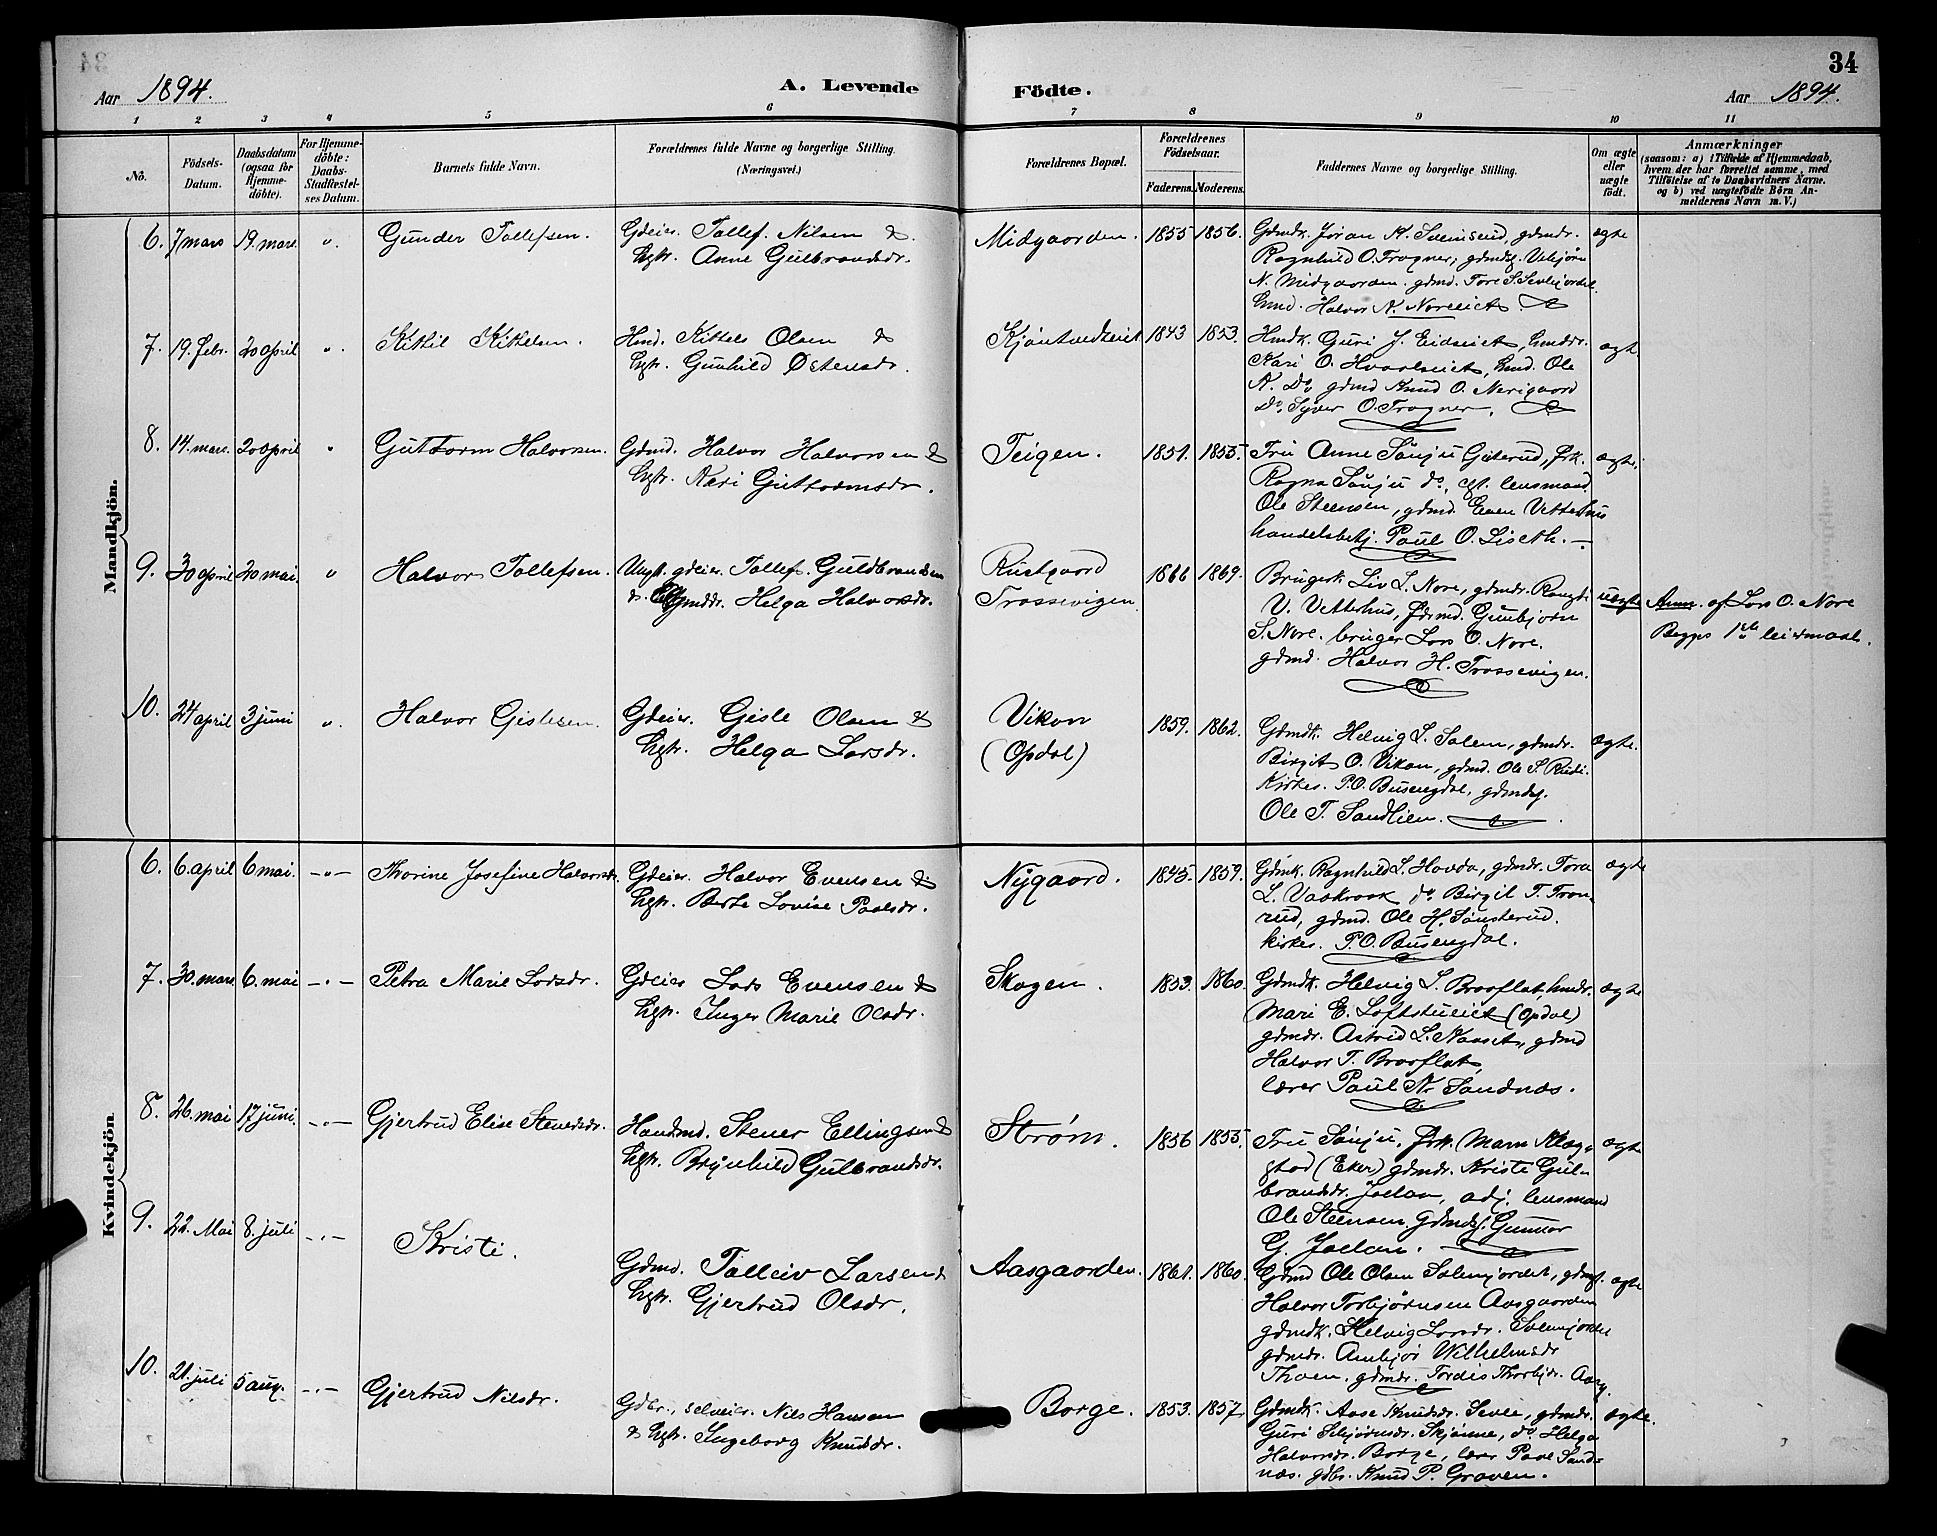 34
Aar 1894. A. Levende Födte. Aar 1894.
1 2 3 4 5 6 7 8 9 10 11
No. Födsels-Datum. Daabsdatum (ogsaa for Hjemme-döbte). For Hjemme-döbte: Daabs-Stadfæstel-ses Datum. Barnets fulde Navn. Forældrenes fulde Navne og borgerlige Stilling. (Næringsvei.) Forældrenes Bopæl. Forældrenes Födselsaar. Faderens. Moderens. Faddernes Navne og borgerlige Stilling. Om ægte eller uægte födt. Anmærkninger (saasom: a) i Tilfælde af Hjemmedaab, hvem der har forrettet samme, med Tilföielse af to Daabsvidners Navne, og b) ved uægtefödte Börn An-melderens Navn m. V.)
Mandkjön.
6. 7 mars 19. mars. ". Gunder Tollefsen. Gdeier. Tollef. Nilsen &
hstr. Anne Gulbrandsdr. Midgaarden. 1855 1856. Gdmdk. Jöran K. Sveinsrud, gdmdr.
Ragnhild O. Frogner, gdmds. Vebjörn
N. Midgaarden. gdmd. Tore S. Sevlejordet.
hmd. Halvor K. Noreeiet. ægte
7. 19. febr. 20 april ". Kittil Kittelsen. Hmd. Kittel Olsen &
hstr. Gunhild Østensdr. Kjöntvedteiet 1843 1853. Hmdk. Guri J. Eideiet, hmddr.
Kari O. Hvaaleeiet, hmd. Ole
K. Do, gdmd Knud O. Nerigaard
Do. Syver O. Frogner. ægte
8. 14. mars. 20 april " Guttorm Halvorsen. Gdmd. Halvor Halvorsen &
hstr. Kari Guttormsdr. Teigen. 1851. 1855. Fru Anne Sönju Gjiterud, frk.
Ragna Sönju do., cst. lensmand
Ole Steensen, gdmd. Even Vetterhus
handelsbetj. Paul O. Liseth. ægte.
9. 30 april 20 mai " Halvor Tollefsen. Ungk. gdeier. Tollef. Guldbrandsen
& gmddr. Helga Halvorsdr. Rustgaard
Trossevigen. 1866 1869. Brugerk. Liv L. Nore, gdmdr. Rangdi
V. Vetterhus, fdrmd. Gunbjörn
S. Nore. bruger Lars O. Nore.
gdmd. Halvor H. Trossevigen. uægte Anm. af Lars O. Nore
Begges 1ste leiermaal.
10. 24 april 3 juni ". Halvor Gislesen. Gdeier. Gisle Olsen &
hstr. Helga Larsdr. Vikan
(Opdal) 1859. 1862. Gdmdk. Helvig L. Solem, gdmdr.
Birgit O. Vikan, gdmd. Ole S. Rudi.
Kirkes. P. O. Busengdal, gdmds.
Ole T. Sandlien. ægte.
Kvindekjön
6. 6. april 6 mai. -"- Thorine Josefine Halvorsdr. Gdeier. Halvor Evensen &
hstr. Berte Lovise Paalsdr. Nygaard. 1845. 1859. Gdmk. Ragnhild L. Hovda, gdmdr. Tora
L. Vaakraak do. Birgit T. Tron-
rud, gdmd. Ole H. Sönsterud.
kirkes. P. O. Busengdal. ægte
7. 30. mars. 6. mai -"- Petra Marie Larsdr. Gdeier Lars Evensen &
hstr. Inger Marie Olsdr. Skogen. 1853. 1860. Gdmdk. Helvig L. Braaflat, hmdr.
Mari E. Loftstueiet (Opdal)
gdmdr. Astrid L. Kaaset, gdmd
Halvor T. Braaflat,
lærer Paul N. Sandnæs. ægte
8. 26. mai 17 juni. -"- Gjertrud Elise Stenersdr. Handmd. Stener Ellingsen &
hstr. Brynhild Gulbrandsdr. Ström. 1856 1855. Fru Sönju. frk. Marn Klæg-
stad (Eker) gdmdr. Kristi Gul-
brandsdr. Joelan, adj. lensmand
Ole Steensen. Gdmds. Gunnar
G. Joelan. ægte
9. 22. Mai 8. juli -"- Kristi. Gdmd. Tolleiv Larsen &
hstr. Gjertrud Olsdr. Aasgaarden. 1861. 1860. Gdmd Ole Olsen Solemjordet, gdms.
Halvor Torbjörnsen Aasgaarden
gdmdk. Helvig Larsdr. Solemjordet
gdmdr. Ambjör Wilhelmsdr
Thoen. gdmdr. Tordis Thorbjdr. Aasg. ægte
10. 21. juli 5 aug. -"- Gjertrud Nilsdr. Gdbr., selveier. Nils Hansen
& hstr. Ingeborg Knudsdr. Borge. 1853. 1857. Gdmdk. Aase Knudsdr. Sevle, gdmdr.
Guri Sebjörnsdr. Skjönne, do. Helga
Halvorsdr. Borge, lærer Paal Sand-
næs. gdbr. Knud P. Graven. ægte.